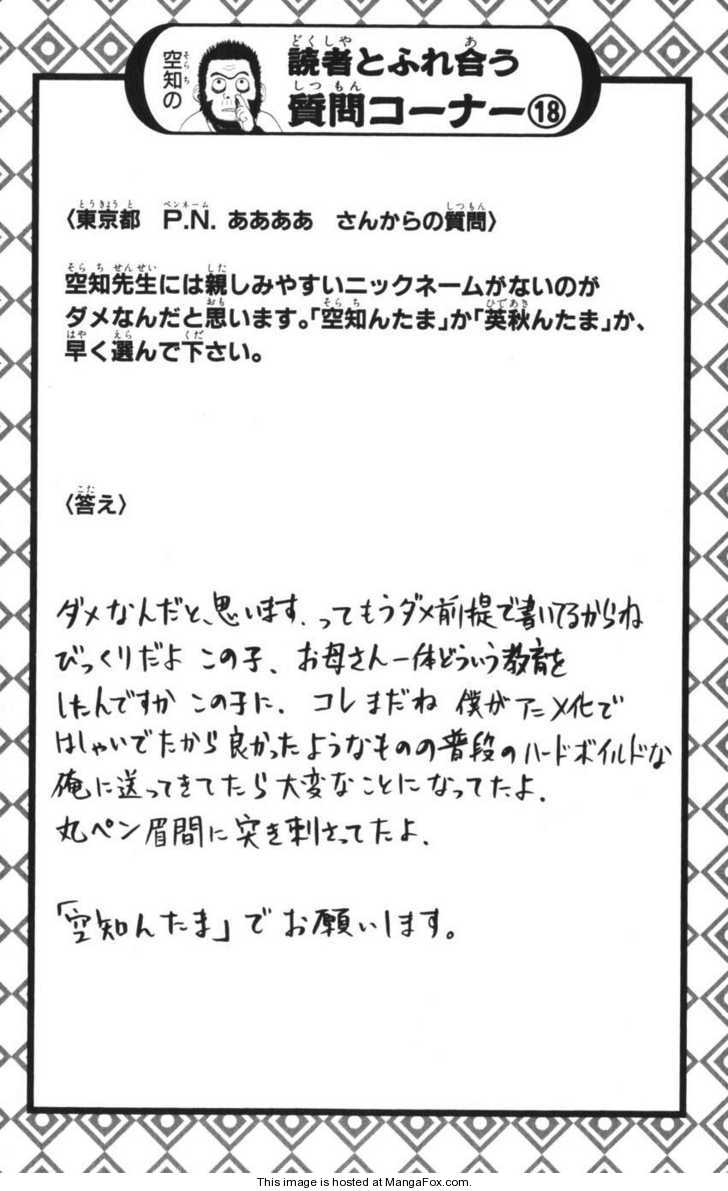 空知の
読者とふれ合う
質問コーナー⑱
〈東京都　P.N. ああああ　さんからの質問〉
空知先生には親しみやすいニックネームがないのが
ダメなんだと思います。「空知んたま」か「英秋んたま」か、
早く選んで下さい。
〈答え〉
ダメなんだと、思います、ってもうダメ前提で書いてるからね
びっくりだよ この子、お母さん一体どういう教育を
したんですか この子に、コレまだね 僕がアニメ化で
はしゃいでたから良かったようなものの普段のハードボイルドな
俺に送ってきてたら大変なことになってたよ、
丸ペン眉間に突き刺さってたよ、
「空知んたま」でお願いします。
This image is hosted at MangaFox.com.